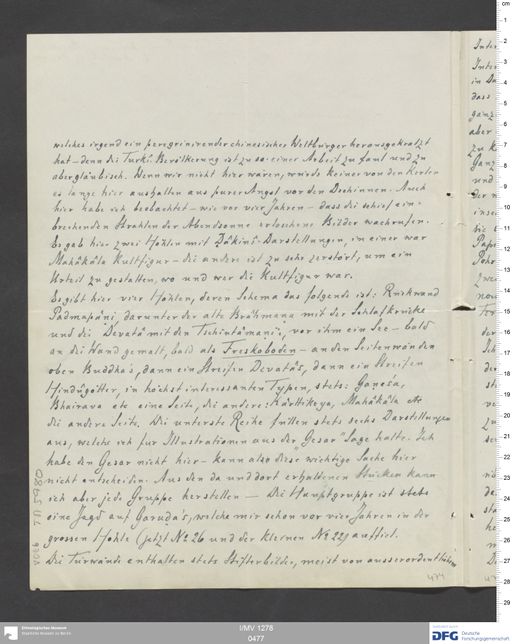 welches irgend ein peregrinirender chinesischer Weltbürger herausgekratzt
hat – denn die Turkī-Bevölkerung ist zu so einer Arbeit zu faul und zu
abergläubisch. Wenn wir nicht hier wären, würde keiner von den Kerlen
es lange hier aushalten aus purer Angst vor den Dschinnen. Auch
hier habe ich beobachtet – wie vor vier Jahren – dass die schief ein-
brechenden Strahlen der Abendsonne erloschene Bilder wachrufen.
Es gab hier zwei Höhlen mit Dâkinî-Darstellungen, in einer war
Mahâkâla Kultfigur – die andere ist zu sehr zerstört, um ein
Urteil zu gestatten, wo und wer die Kultfigur war.
Es gibt hier vier Höhlen, deren Schema das folgende ist: Rückwand
Padmapâni, darunter der alte Brâhmana mit der Schlafkrücke
und die Devatâ mit den Tschintâmani's, vor ihm ein See – bald
an die Wand gemalt, bald als Freskoboden – an den Seitenwänden
oben Buddha's, dann ein Streifen Devatâ's, dann ein Streifen
Hindûgötter, in höchst interessanten Typen, stets: Ganesa,
Bhairava etc eine Seite, die andere: Kârttikeya, Mahâkâla etc
die andere Seite. Die unterste Reihe füllen stets sechs Darstellungen
aus, welche ich für Illustrationen aus der „Gesar" Sage halte. Ich
habe den Gesar nicht hier – kann also diese wichtige Sache hier
nicht entscheiden. Aus den da und dort erhaltenen Stücken kann
ich aber jede Gruppe herstellen – Die Hauptgruppe ist stets
eine Jagd auf Garuda's, welche mir schon vor vier Jahren in der
grossen Höhle (jetzt No 26 und der kleinen No 22) auffiel.
Die Türwände enthalten stets Stifterbilder, meist von ausserordentlichem
474
Ethnologisches Museum
Staatliche Museen zu Berlin
I/MV 1278
0477
DFG
Deutsche
Forschungsgemeinschaft